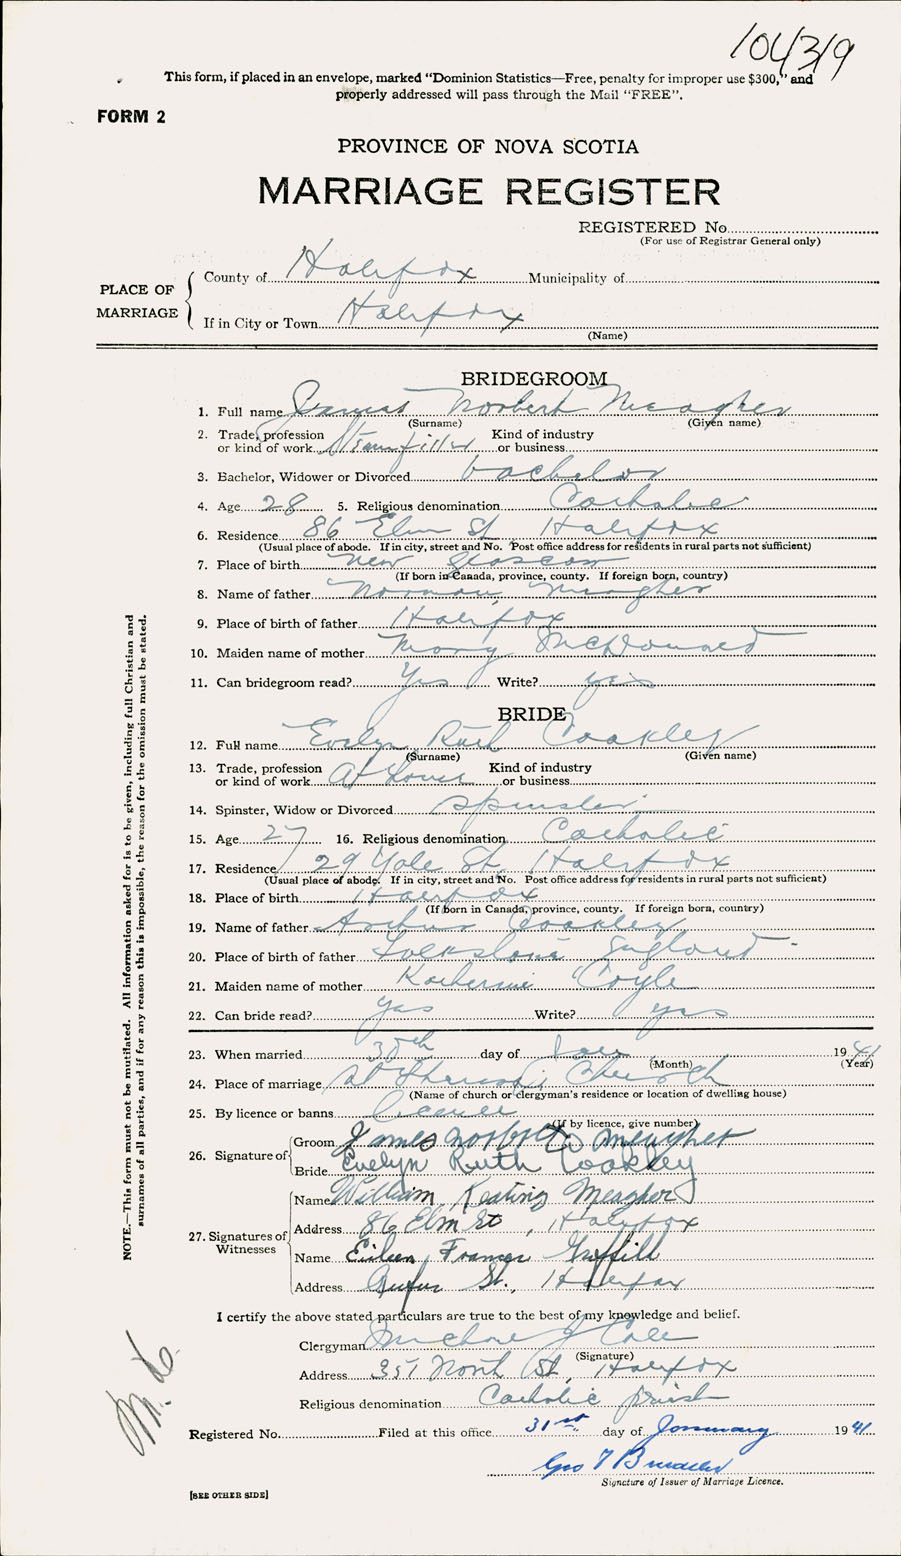 104319
This form, if placed in an envelope, marked "Dominion Statistics—Free, penalty for improper use $300," and
properly addressed will pass through the Mail "FREE".
FORM 2
PROVINCE OF NOVA SCOTIA
MARRIAGE REGISTER
REGISTERED No.
(For use of Registrar General only)
PLACE OF MARRIAGE
County of Halifax Municipality of
If in City or Town Halifax
(Name)
BRIDEGROOM
1. Full name James Norbert Meagher
(Surname) (Given name)
2. Trade, profession or kind of work Steamfitter Kind of industry or business
3. Bachelor, Widower or Divorced bachelor
4. Age 28 5. Religious denomination Catholic
6. Residence 86 Elm St Halifax
(Usual place of abode. If in city, street and No. Post office address for residents in rural parts not sufficient)
7. Place of birth New Glasgow
(If born in Canada, province, county. If foreign born, country)
8. Name of father Norman Meagher
9. Place of birth of father Halifax
10. Maiden name of mother Mary McDonald
11. Can bridegroom read? Yes Write? yes
BRIDE
12. Full name Evelyn Ruth Coakley
(Surname) (Given name)
13. Trade, profession or kind of work At Home Kind of industry or business
14. Spinster, Widow or Divorced Spinster
15. Age 27 16. Religious denomination Catholic
17. Residence 29 Yale St, Halifax
(Usual place of abode. If in city, street and No. Post office address for residents in rural parts not sufficient)
18. Place of birth Halifax
(If born in Canada, province, county. If foreign born, country)
19. Name of father Arthur Coakley
20. Place of birth of father Folkstone England
21. Maiden name of mother Katherine Coyle
22. Can bride read? yes Write? yes
23. When married 30th day of Jan 1941
(Month) (Year)
24. Place of marriage St Theresa's Church
(Name of church or clergyman's residence or location of dwelling house)
25. By licence or banns licence
(If by licence, give number)
26. Signature of Groom James Norbert Meagher
Bride Evelyn Ruth Coakley
27. Signatures of Witnesses
Name William Keating Meagher
Address 86 Elm St, Halifax
Name Eileen Frances
Address Rufus St., Halifax
I certify the above stated particulars are true to the best of my knowledge and belief.
Clergyman J Cole
(Signature)
Address 357 North St, Halifax
Religious denomination Catholic priest
Registered No. Filed at this office 31st day of January 1941
Geo
Signature of Issuer of Marriage Licence.
[SEE OTHER SIDE]
NOTE.—This form must not be mutilated. All information asked for is to be given, including full Christian and
surnames of all parties, and if for any reason this is impossible, the reason for the omission must be stated.